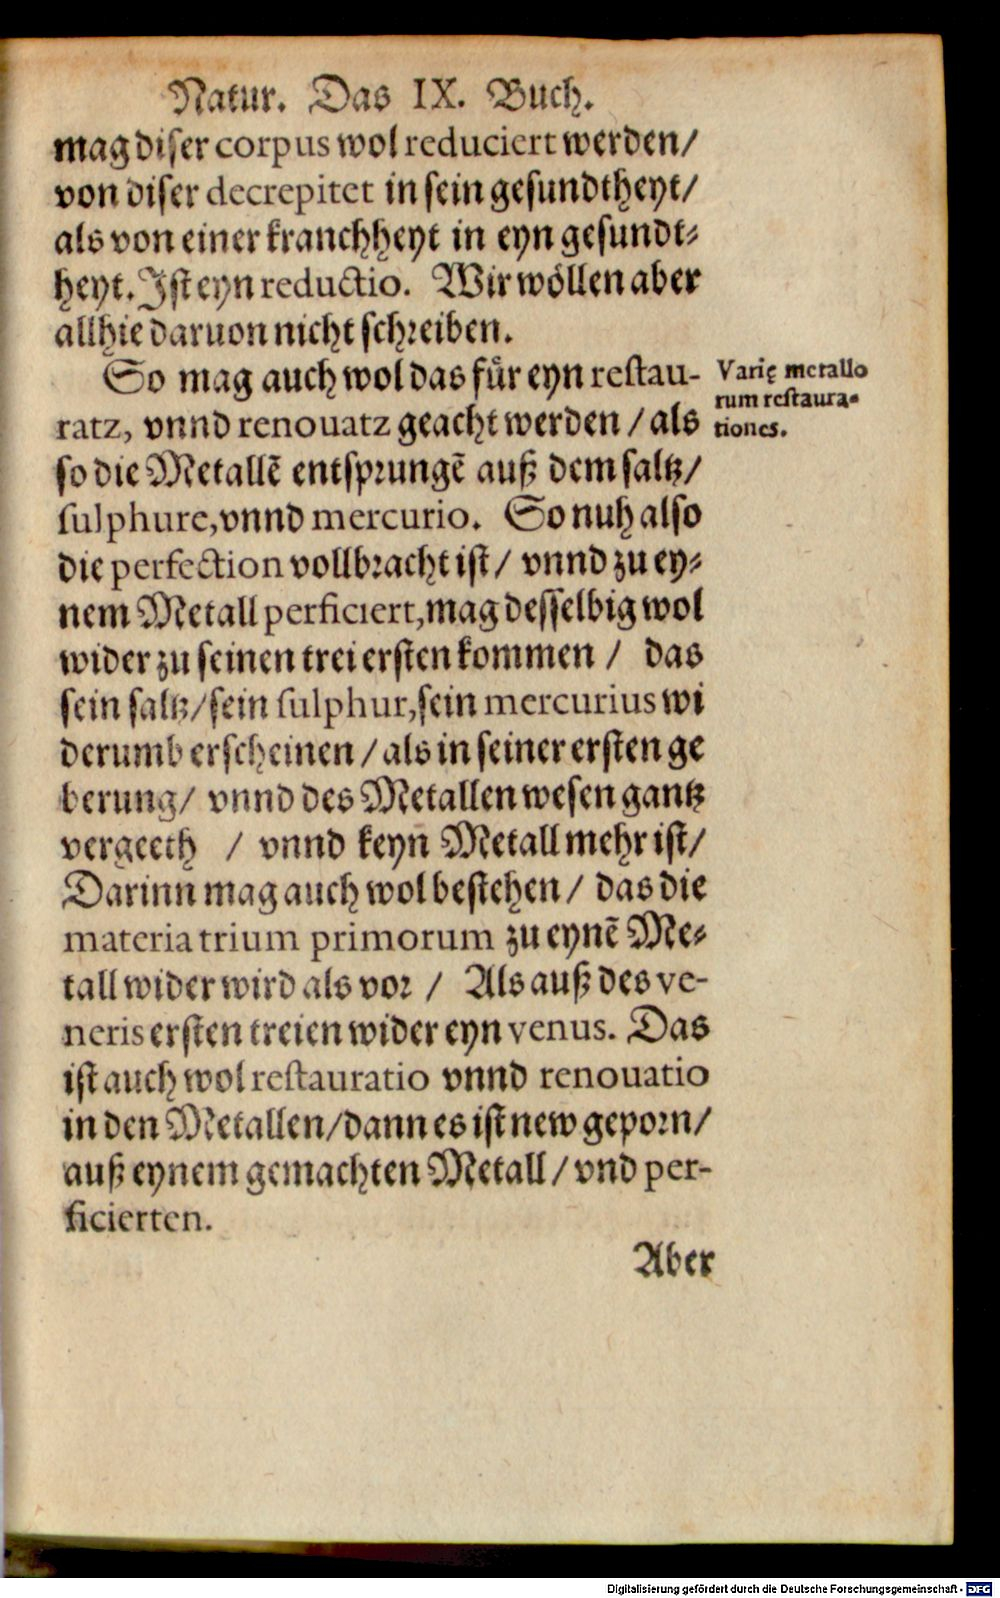 Natur. Das IX. Buch.
mag diser corpus wol reduciert werden/
von diser decrepitet in sein gesundtheyt/
als von einer kranchheyt in eyn gesundt⸗
heyt. Jst eyn reductio. Wir wöllen aber
allhie daruon nicht schreiben.
So mag auch wol das fuͤr eyn restau-
ratz, vnnd renouatz geacht werden / als
so die Metallē entsprungē auß dem saltz/
sulphure, vnnd mercurio. So nuh also
die perfection vollbracht ist / vnnd zu ey⸗
nem Metall perficiert, mag desselbig wol
wider zu seinen trei ersten kommen / das
sein saltz/sein sulphur, sein mercurius wi
derumb erscheinen / als in seiner ersten ge
berung/ vnnd des Metallen wesen gantz
vergeeth / vnnd keyn Metall mehr ist/
Darinn mag auch wol bestehen / das die
materia trium primorum zu eynē Me⸗
tall wider wird als vor / Als auß des ve-
neris ersten treien wider eyn venus. Das
ist auch wol restauratio vnnd renouatio
in den Metallen/dann es ist new geporn/
auß eynem gemachten Metall / vnd per-
ficierten.
Aber
Varię metallo
rum restaura⸗
tiones.
Digitalisierung gefördert durch die Deutsche Forschungsgemeinschaft - DFG